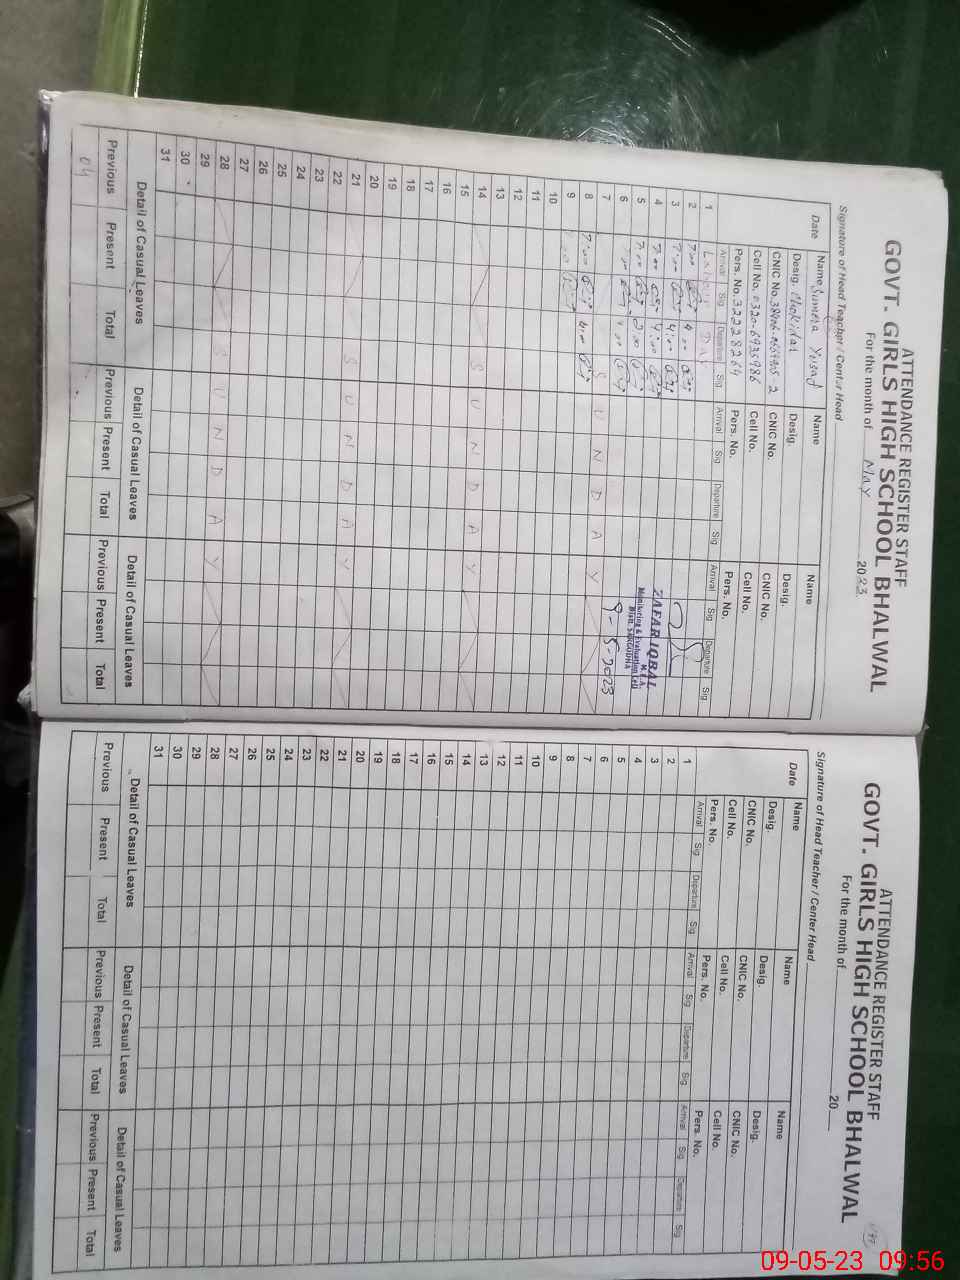 ATTENDANCE REGISTER STAFF
GOVT. GIRLS HIGH SCHOOL BHALWAL
For the month of May 2023
Signature of Head Teacher / Center Head
Date Name Sumera Name Name
Desig. Chokidar Desig. Desig.
CNIC No. CNIC No. CNIC No.
Cell No. 0320-6935986 Cell No. Cell No.
Pers. No. 32228264 Pers. No. Pers. No.
Arrival Sig Departure Sig. Arrival Sig. Departure Sig. Arrival Sig Departure Sig.
1 DAY
2 7:00
3 7:00 4:00
4 7:00 4:00
5 7:00
6
7 SUNDAY
8 7:00 4:00
9
10
11
12
13
14 SUNDAY
15
16
17
18
19
20
21 SUNDAY
22
23
24
25
26
27
28 SUNDAY
29
30
31
ZAFAR IQBAL
M.E.A.
Monitoring & Evaluation Cell
Distt. SARGODHA
9-5-2023
Detail of Casual Leaves Detail of Casual Leaves Detail of Casual Leaves
Previous Present Total Previous Present Total Previous Present Total
04
ATTENDANCE REGISTER STAFF
GOVT. GIRLS HIGH SCHOOL BHALWAL
For the month of 20
Signature of Head Teacher / Center Head
Date Name Name Name
Desig. Desig. Desig.
CNIC No. CNIC No. CNIC No.
Cell No. Cell No. Cell No.
Pers. No. Pers. No. Pers. No.
Arrival Sig Departure Sig Arrival Sig. Departure Sig. Arrival Sig. Departure Sig.
1
2
3
4
5
6
7
8
9
10
11
12
13
14
15
16
17
18
19
20
21
22
23
24
25
26
27
28
29
30
31
Detail of Casual Leaves Detail of Casual Leaves Detail of Casual Leaves
Previous Present Total Previous Present Total Previous Present Total
09-05-23 09:56